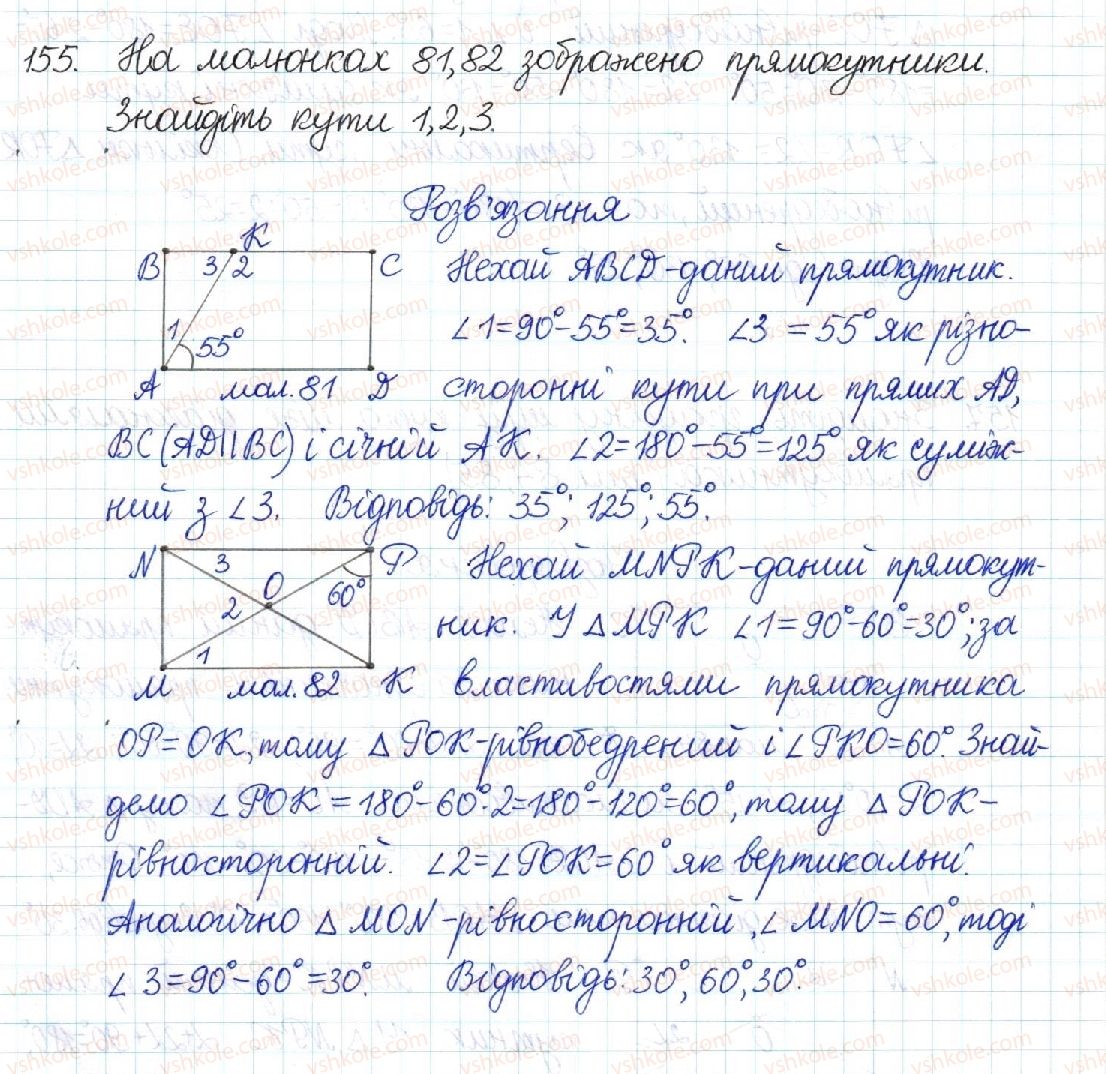 155. На малюнках 81,82 зображено прямокутники.
Знайдіть кути 1,2,3.
Розв'язання
B 3 K 2 C
1 55°
A мал.81 D
Нехай ABCD-даний прямокутник.
∠1=90°-55°=35°. ∠3 =55° як різно-
сторонні кути при прямих AD,
BC(AD||BC) і січній AK. ∠2=180°-55°=125° як суміж-
ний з ∠3. Відповідь: 35°; 125°; 55°.
N 3 P
2 O 60°
1
M мал.82 K
Нехай MNPK-даний прямокут-
ник. У △MPK ∠1=90°-60°=30°; за
властивостями прямокутника
OP=OK, тому △POK-рівнобедрений і ∠PKO=60°. Знай-
демо ∠POK=180°-60°·2=180°-120°=60°, тому △POK-
рівносторонній. ∠2=∠POK=60° як вертикальні.
Аналогічно △MON-рівносторонній, ∠MNO=60°, тоді
∠3=90°-60°=30°. Відповідь: 30°, 60°, 30°.